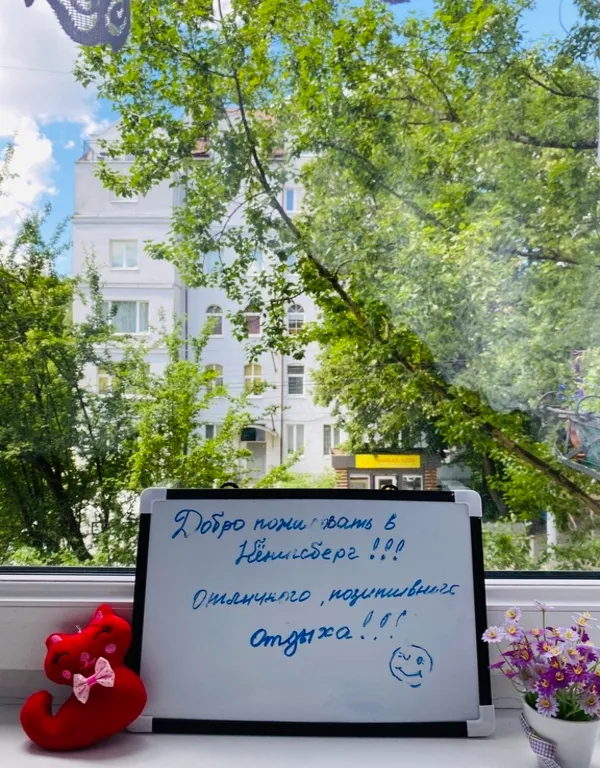 Добро пожаловать в
Кёнигсберг !!!
Отличного, позитивного
отдыха!!!